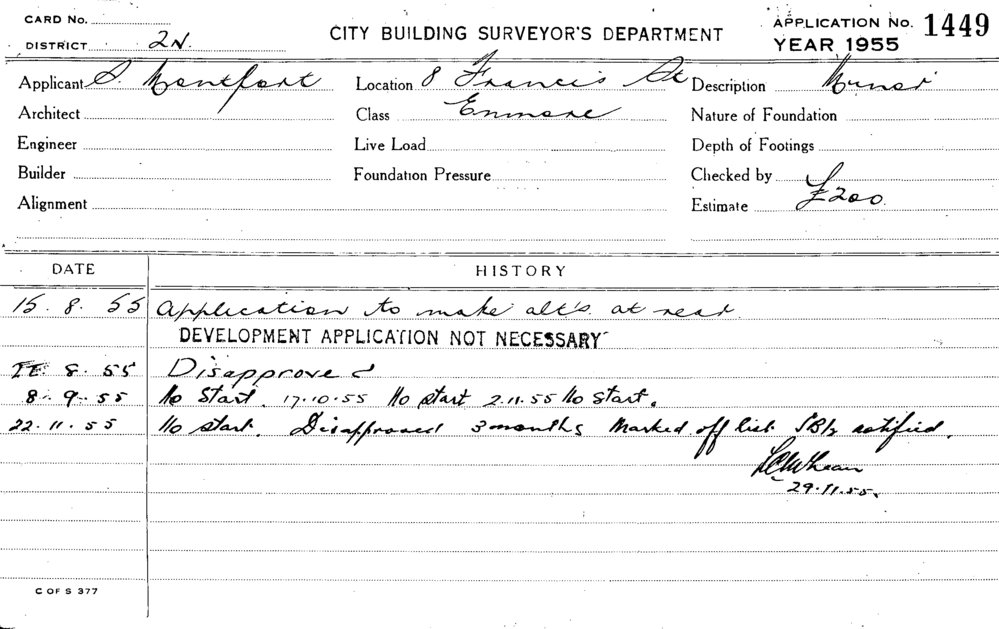 CARD No. APPLICATION No. 1449
DISTRICT 2N. CITY BUILDING SURVEYOR'S DEPARTMENT YEAR 1955
Applicant S. Montfort Location 8 Francis St Description Minor
Architect Class Enmore Nature of Foundation
Engineer Live Load Depth of Footings
Builder Foundation Pressure Checked by
Alignment Estimate £200.
DATE HISTORY
15. 8. 55 Application to make alt's. at rear.
DEVELOPMENT APPLICATION NOT NECESSARY
8. 55 Disapproved
8. 9. 55 No Start. 17.10.55 No start 2.11.55 No Start.
22. 11. 55 No start. Disapproved 3 months Marked off list notified.
29.11.55.
C OF S 377